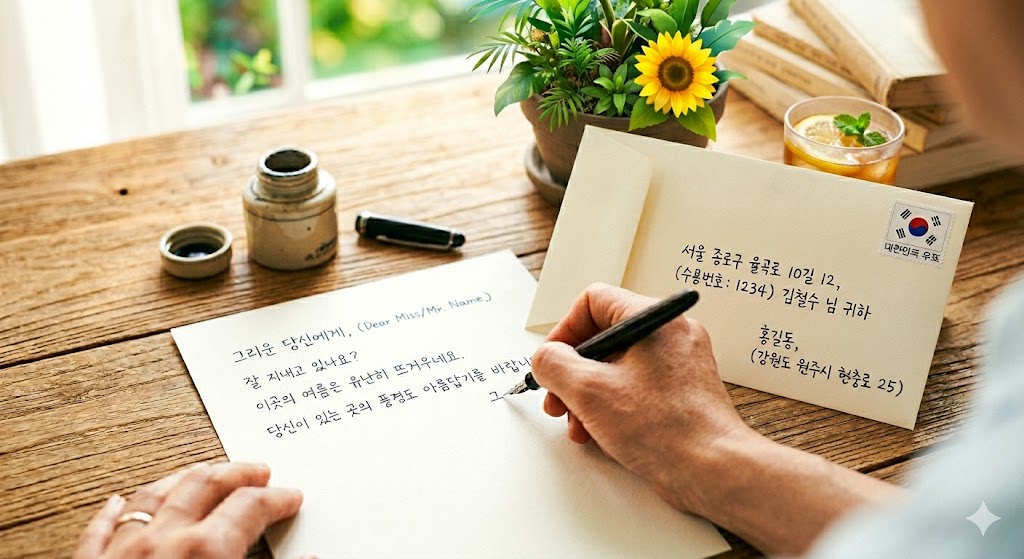 그리운 당신에게, (Dear Miss/Mr. Name)
잘 지내고 있나요?
이곳의 여름은 유난히 뜨거우네요.
당신이 있는 곳의 풍경도 아름답기를 바랍니
그
대한민국 우표
서울 종로구 율곡로 10길 12,
(수용번호: 1234) 김철수 님 귀하
홍길동,
(강원도 원주시 현충로 25)